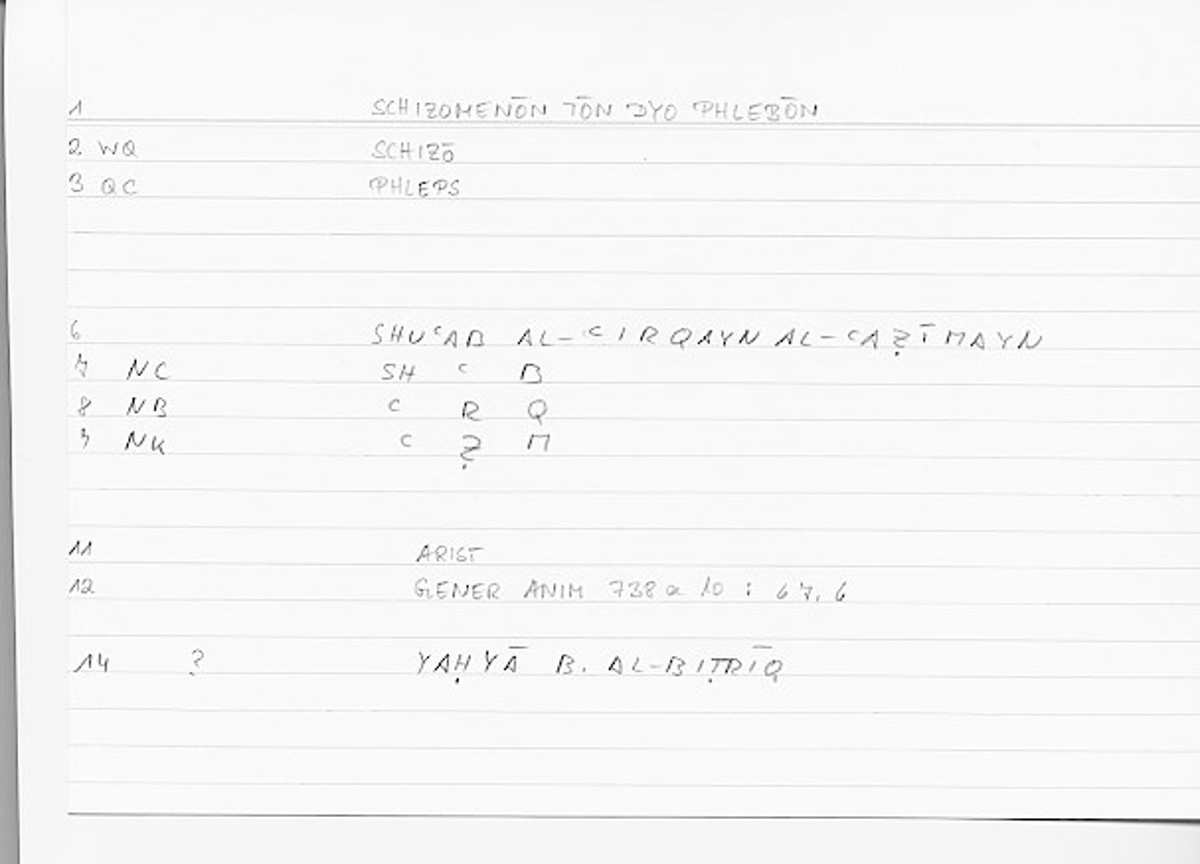 1 SCHIZOMENŌN TŌN DYO PHLEBŌN
2 WQ SCHIZŌ
3 QC PHLEPS
6 SHUʿAB AL-ʿIRQAYN AL-ʿAẒĪMAYN
7 NC SH ʿ B
8 NB ʿ R Q
9 NK ʿ Ẓ M
11 ARIST
12 GENER ANIM 738 a 10 : 67, 6
14 ? YAḤYĀ B. AL-BIṬRĪQ